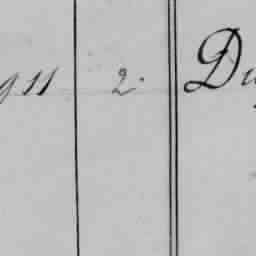 911 2. Du